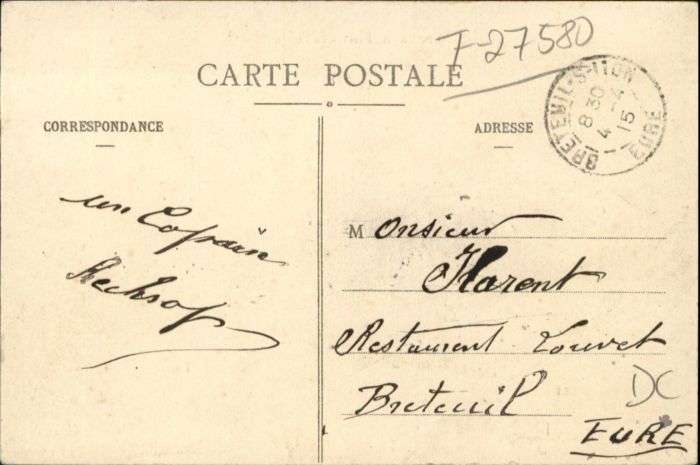 F-27580
CARTE POSTALE
CORRESPONDANCE
ADRESSE
BRETEUIL-S-ITON
8 30
4 -4
15
EURE
un Copain
Monsieur
Florent
Restaurent Louvet
Breteuil
DC
EURE